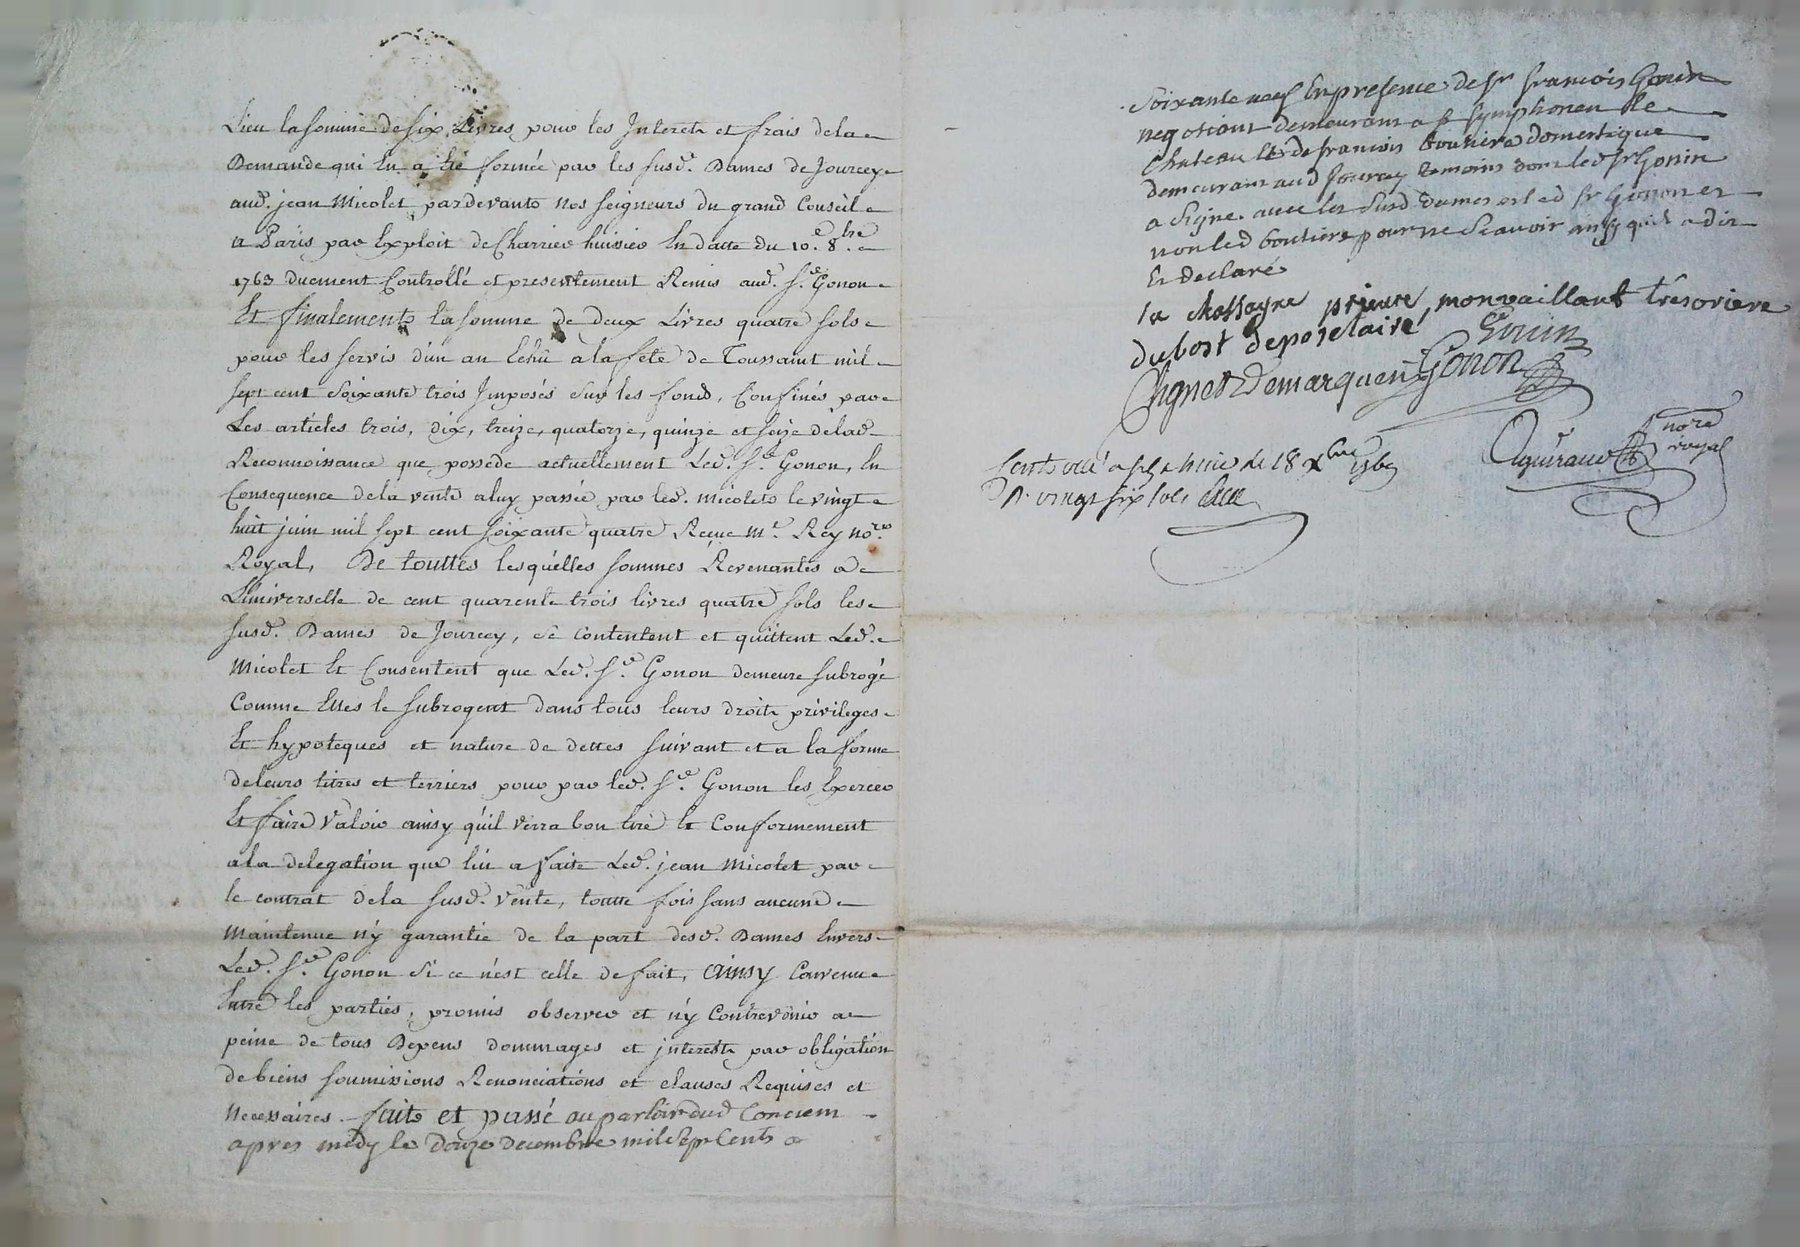 Lieu la somme de six Livres pour les Interets et frais de la
Demande qui En a été formée par les susd. Dames de Jourcey
aud. jean Micolet pardevant Nos seigneurs du grand Conseil
a Paris par Exploit de Charrier huissier En datte du 10.e 8.bre
1763 duement Controllé et presentement Remis aud. S.r Gonon
Et finalement la somme de deux Livres quatre sols
pour les servis d'un an Echû à la fete de Toussaint mil
sept cent soixante trois Imposés sur les fonds, Confinés par
Les articles trois, dix, treize, quatorze, quinze et seize de lad.
Reconnoissance que possede actuellement Led. S.r Gonon, En
Consequence de la vente a luy passée par led. micolet le vingt
huit juin mil sept cent soixante quatre Recue M.e Rey no.re
Royal, De touttes lesquelles sommes Revenantes a
L'universelle de cent quarente trois livres quatre sols les
susd. Dames de Jourcey, se contentent et quittent Led.
Micolet Et Consentent que Led. S.r Gonon demeure subrogé
Comme Elles le subrogent dans tous leurs droits privileges
Et hypoteques et nature de dettes suivant et a la forme
de leurs titres et terriers pour par led. S.r Gonon les Exercer
Et faire valoir ainsy qu'il verra bon être Et Conformement
a la delegation que lui a faite Led. jean Micolet par
le contrat de la susd. vente, toutte fois sans aucune
Maintenue n'y garantie de la part desd. Dames Envers
Led. S.r Gonon si ce n'est celle de fait, ainsy Convenu
Entre les parties, promis observer et n'y Contrevenir a
peine de tous Depens dommages et interests par obligation
de biens soumissions Renonciations et clauses Requises et
Necessaires. fait et passé au parloir dud
apres midy le Douze decembre mil sept Cents
Soixante neuf En presence de Sr francois Gonin
negotiant demeurant a St Symphorien le
Chateau Et de francois boutiere domestique
demeurant aud Jourcey temoins dont led Sr Gonin
a Signe avec les Susd dames et led Sr Gonon et
non led boutiere pour ne Scavoir ainsy quil a dit
Et declaré
prieure monvaillant trésoriere
dubost
Gonin
Gonon
Demarquen
no.re
royal
Controllé a le 18 Xbre 1769
R. vingt six sols